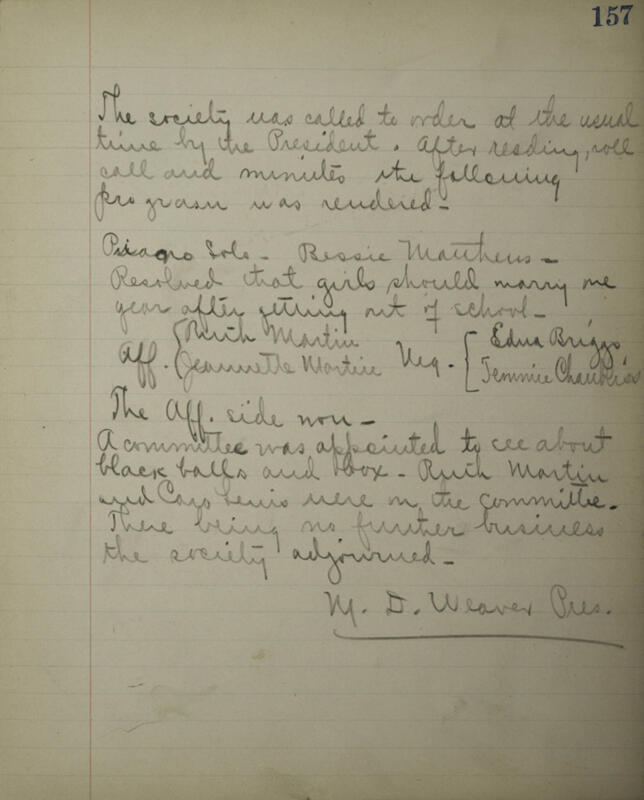 157
The society was called to order at the usual
time by the President. After reading, roll
call and minutes the following
program was rendered—
Piano Solo — Bessie Matthews —
Resolved that girls should marry one
year after getting out of school —
Aff. { Ruth Martin Neg. [ Edna Briggs
Jeannette Martin Temmie Chambliss
The Aff. side won —
A committee was appointed to see about
black balls and box — Ruth Martin
and Lewis were on the committee.
There being no further business
the society adjourned —
M. D. Weaver Pres.